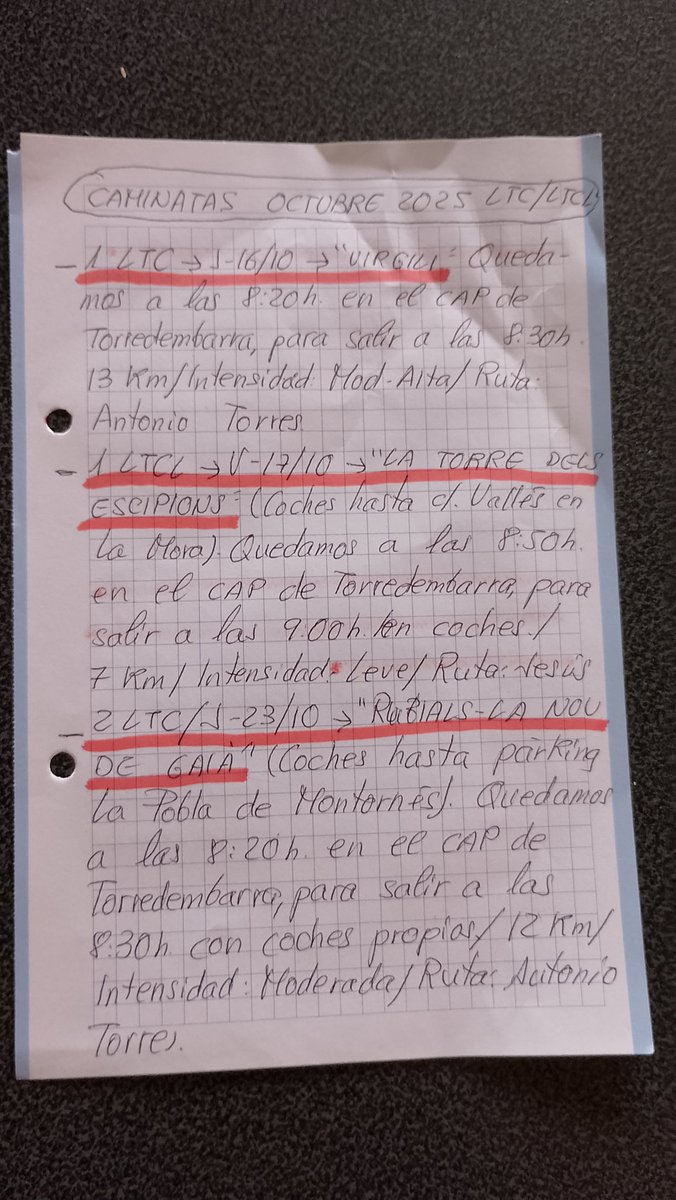 CAMINATAS OCTUBRE 2025 LTC/LTCL
- 1 LTC → J-16/10 → "VIRGILI" Queda-
mos a las 8:20h. en el CAP de
Torredembarra, para salir a las 8:30h.
13 Km/Intensidad: Mod-Alta/Ruta:
Antonio Torres
- 1 LTCL → V-17/10 → "LA TORRE DELS
ESCIPIONS" (Coches hasta c/. Vallés en
La Mora). Quedamos a las 8:50h.
en el CAP de Torredembarra, para
salir a las 9:00h. en coches./
7 Km/Intensidad: Leve/Ruta: Jesús
- 2 LTC/J-23/10 → "RUBIALS-LA NOU
DE GAIÀ" (Coches hasta párking
La Pobla de Montornés). Quedamos
a las 8:20h. en el CAP de
Torredembarra, para salir a las
8:30h. con coches propios/12 Km/
Intensidad: Moderada/Ruta: Antonio
Torres.